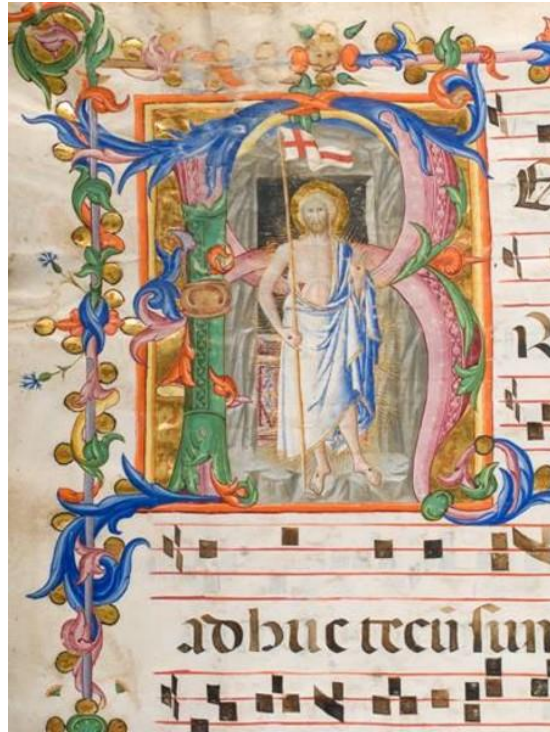 R
R
adhuc tecū sum